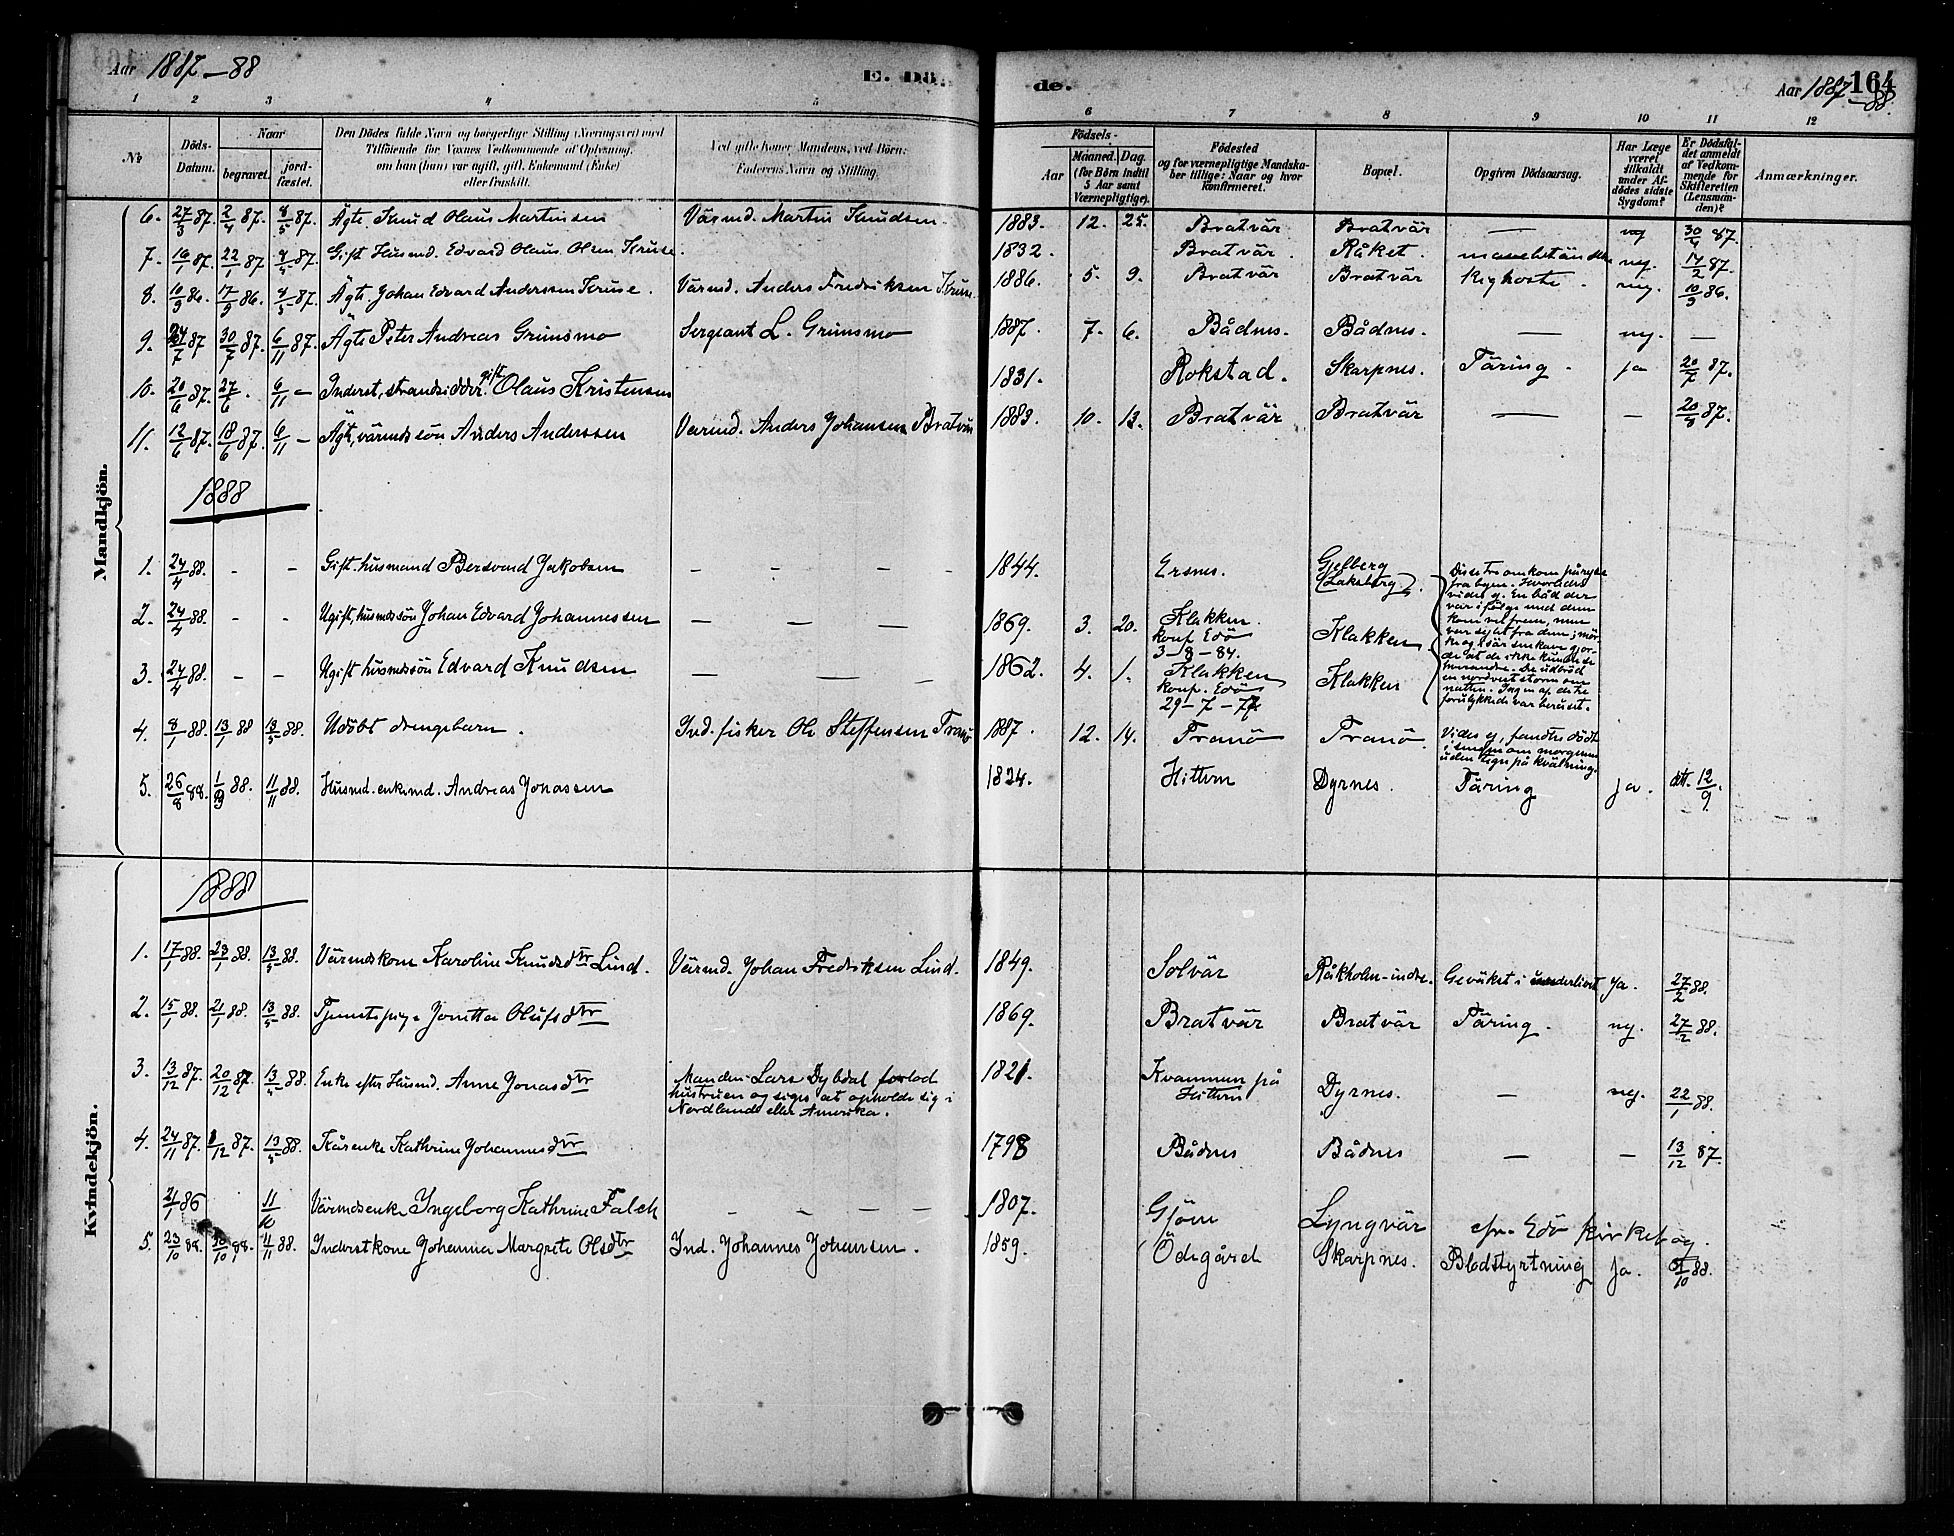 Aar 1887-88
E. Dö-
de.
Aar 1887-88.
164
1 2 3 4 5 6 7 8 9 10 11 12
Nr
Döds-
Datum.
Naar
begravet.
jord-
fæstet.
Den Dödes fulde Navn og borgerlige Stilling (Næringsvei) med
Tilföiende for Voxnes Vedkommende af Oplysning,
om han (hun) var ugift, gift, Enkemand (Enke)
eller fraskilt.
Ved gifte Koner Mandens, ved Börn:
Faderens Navn og Stilling.
Födsels-
Aar
Maaned. Dag.
(for Börn indtil
5 Aar samt
Værnepligtige).
Födested
og for værnepligtige Mandska-
ber tillige: Naar og hvor
konfirmeret.
Bopæl.
Opgiven Dödsaarsag.
Har Læge
været
tilkaldt
under Af-
dödes sidste
Sygdom?
Er Dödsfal-
det anmeldt
af Vedkom-
mende for
Skifteretten
(Lensman-
den)?
Anmærkninger.
Mandkjön.
6. 27/3 87. 2/4 87. 8/5 87. Ägte Knud Olaus Martinsen Värmd. Martin Knudsen. 1883. 12. 25. Bratvär Bratvär — ng 30/4 87.
7. 16/1 87. 22/1 87 8/5 87. Gift Husmd. Edvard Olaus Olsen Kruse. 1832. Bratvär. Råket. ng. 14/2 87.
8. 10/9 86. 17/9 86. 8/5 87. Ägte Johan Edvard Anderssen Kruse. Värmd. Anders Fredriksen Kruse 1886. 5. 9. Bratvär Bratvär Kighoste. ng. 10/9 86.
9. 24/7 87 30/7 87. 6/11 87. Ägte Peter Andreas Grünsmo Sergeant L. Grünsmo 1887. 7. 6. Bådnes. Bådnes. — ng. —
10. 20/6 87. 27/6. 6/11 — Inderst, strandsidder gift Olaus Kristensen 1831. Rokstad. Skarpnes. Täring. ja 20/7 87.
11. 12/6 87. 18/6 87. 6/11 — Ägte, värmds sön Anders Anderssen Varmd. Anders Johansen Bratvär 1883. 10. 13. Bratvär Bratvär — — 20/8 87.
1888
1. 24/4 88. - - Gift. husmand Bersvend Jakobsen — — — - 1844. Ersnes. Gjelberg
(Laksberg).
Disse tre omkom på rejse
fra byen. Hvorledes
vides ej. En båd der
var i fölge med dem
kom vel frem, men
2. 24/4 88. - - Ugift, husmdssön Johan Edvard Johannessen — — — 1869. 3. 20. Klakken.
konf. Edö
3-8-84.
Klakken
3. 24/4 88. — — Ugift husmdssön Edvard Knudsen — — — 1862. 4. 1. Klakken
konf. Edö
29-7-77
Klakken
de at de ikke kunde se
hinanden. De udbröd
en nordvest storm om
natten. Ingen af de tre
forulykkede var beruset.
4. 8/1 88. 13/1 88 13/5 88. Udöbt drengebarn. Ind. fisker Ole Steffensen Tranö 1887. 12. 14. Tranö Tranö.
Vides ej, fandtes dödt
i sengen om morgenen
uden tegn på kvälning.
5. 26/8 88. 1/9 88. 11/11 88. Husmd. enkemd. Andreas Jonassen 1824. Hittern Dyrnes. Täring ja. dtt. 12/9.
Kvindekjön.
1888
1. 17/1 88. 23/1 88. 13/5 88. Värmdskone Karoline Knudsdtr Lind. Värmd. Johan Fredriksen Lind. 1849. Solvär Råkholm-indre. Geväkst i underlivet Ja. 27/2 88.
2. 15/1 88. 21/1 88. 13/5 88. Tjenestepige Jonetta Olufsdtr 1869. Bratvär Bratvär Täring. ng. 27/2 88.
3. 13/12 87. 20/12 87. 13/5 88. Enke efter Husmd. Anne Jonasdtr
Manden Lars Dybdal forlod
hustruen og siges at opholde sig i
Nordland eller Amerika.
1821. Kvammen på
Hittern
Dyrnes. — ng. 22/1 88.
4. 24/11 87. 1/12 87. 13/5 88. Kårenke Kathrine Johannesdtr 1798 Bådnes Bådnes — — 13/12 87.
21/1 86 11/10 Värmdsenke Ingeborg Kathrine Falch — — — — 1807. Gjöen Lyngvär cfr. Edö kirkebog.
5. 23/10 88. 30/10 88. 11/11 88. Inderstkone Johanna Margrete Olsdtr Ind. Johannes Johansen. 1859. Ödegård Skarpnes. Blodstyrtning Ja. 31/10 88.